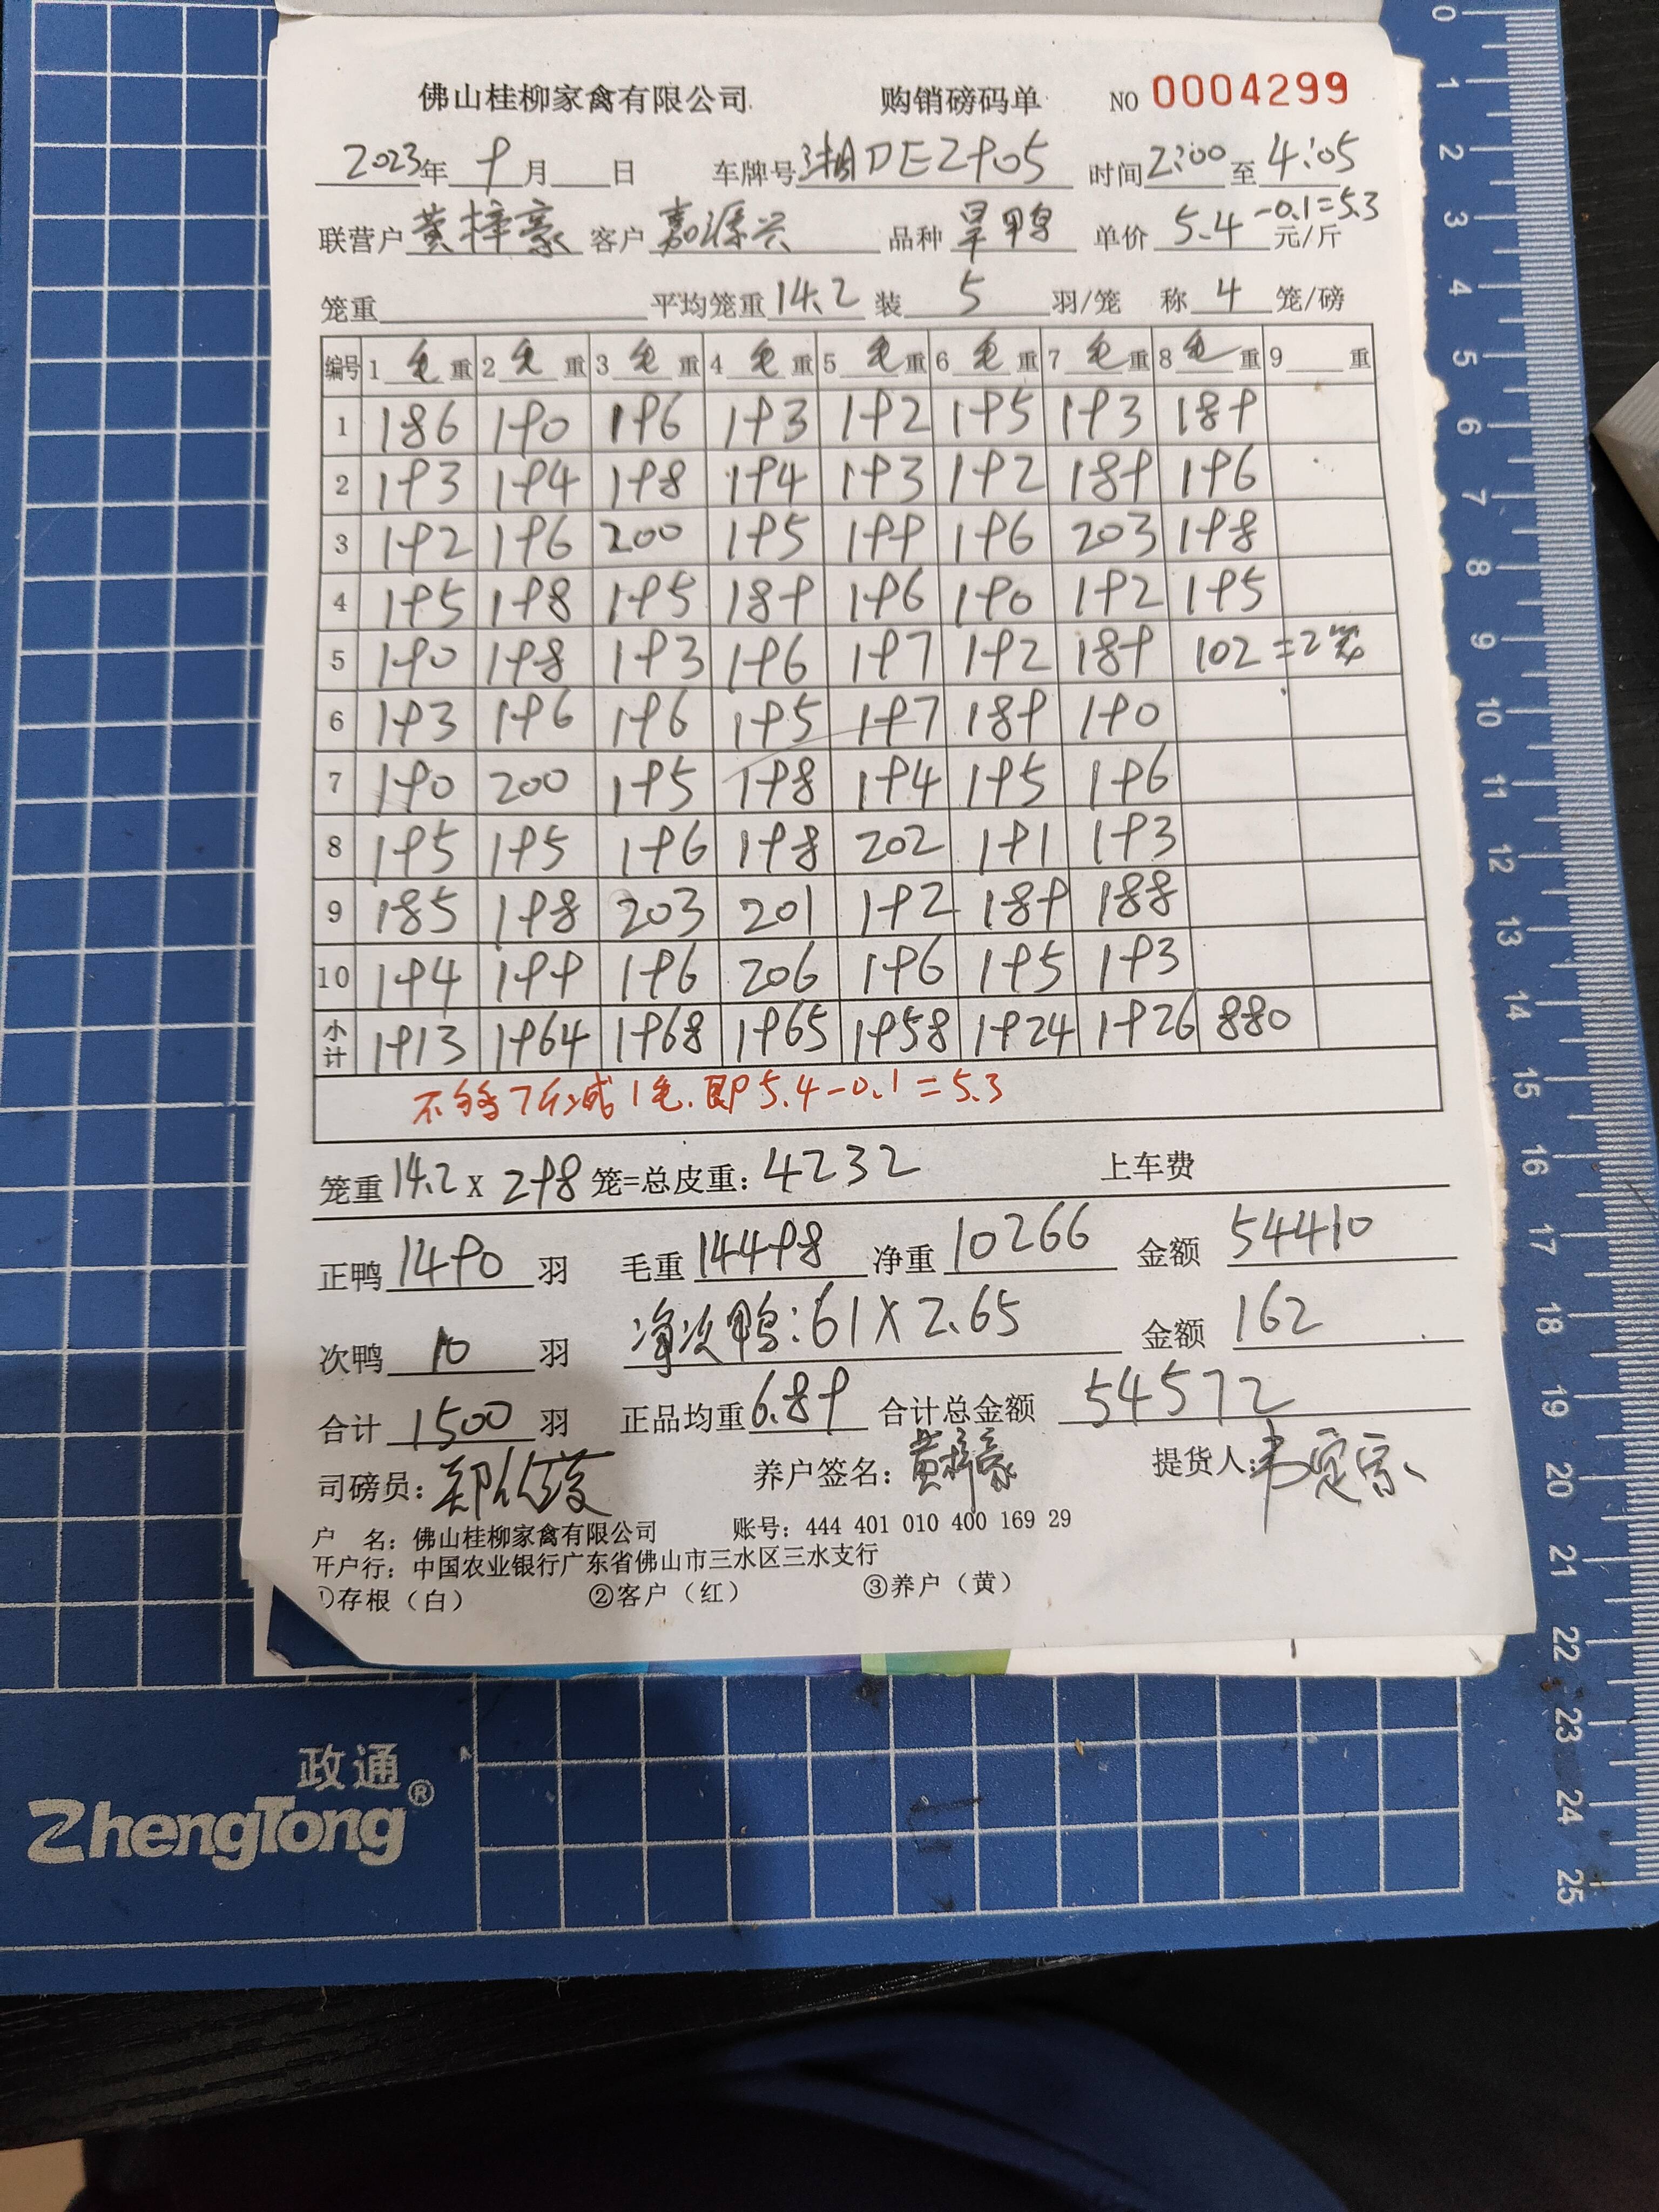 佛山桂柳家禽有限公司 购销磅码单 NO 0004299
2023年 9月 日 车牌号 湘DE2905 时间 2:00 至 4:05
联营户 黄梓豪 客户 嘉源兴 品种 旱鸭 单价 5.4 -0.1=5.3 元/斤
笼重 平均笼重 14.2 装 5 羽/笼 称 4 笼/磅
编号 1 毛重 2 毛重 3 毛重 4 毛重 5 毛重 6 毛重 7 毛重 8 毛重 9 重
1 186 190 196 193 192 195 193 189
2 193 194 198 194 193 192 189 196
3 192 196 200 195 199 196 203 198
4 195 198 195 189 196 190 192 195
5 190 198 193 196 197 192 189 102 =2笼
6 193 196 196 195 197 189 190
7 190 200 195 198 194 195 196
8 195 195 196 198 202 191 193
9 185 198 203 201 192 189 188
10 194 199 196 206 196 195 193
小计 1913 1964 1968 1965 1958 1924 1926 880
不够7斤减1毛.即5.4-0.1=5.3
笼重 14.2 X 298 笼=总皮重: 4232 上车费
正鸭 1490 羽 毛重 14498 净重 10266 金额 54410
次鸭 10 羽 净次鸭:61X2.65 金额 162
合计 1500 羽 正品均重 6.89 合计总金额 54572
司磅员: 养户签名: 黄梓豪 提货人:
户 名: 佛山桂柳家禽有限公司 账号: 444 401 010 400 169 29
开户行: 中国农业银行广东省佛山市三水区三水支行
①存根（白） ②客户（红） ③养户（黄）
政通
ZhengTong®
0
1
2
3
4
5
6
7
8
9
10
11
12
13
14
15
16
17
18
19
20
21
22
23
24
25